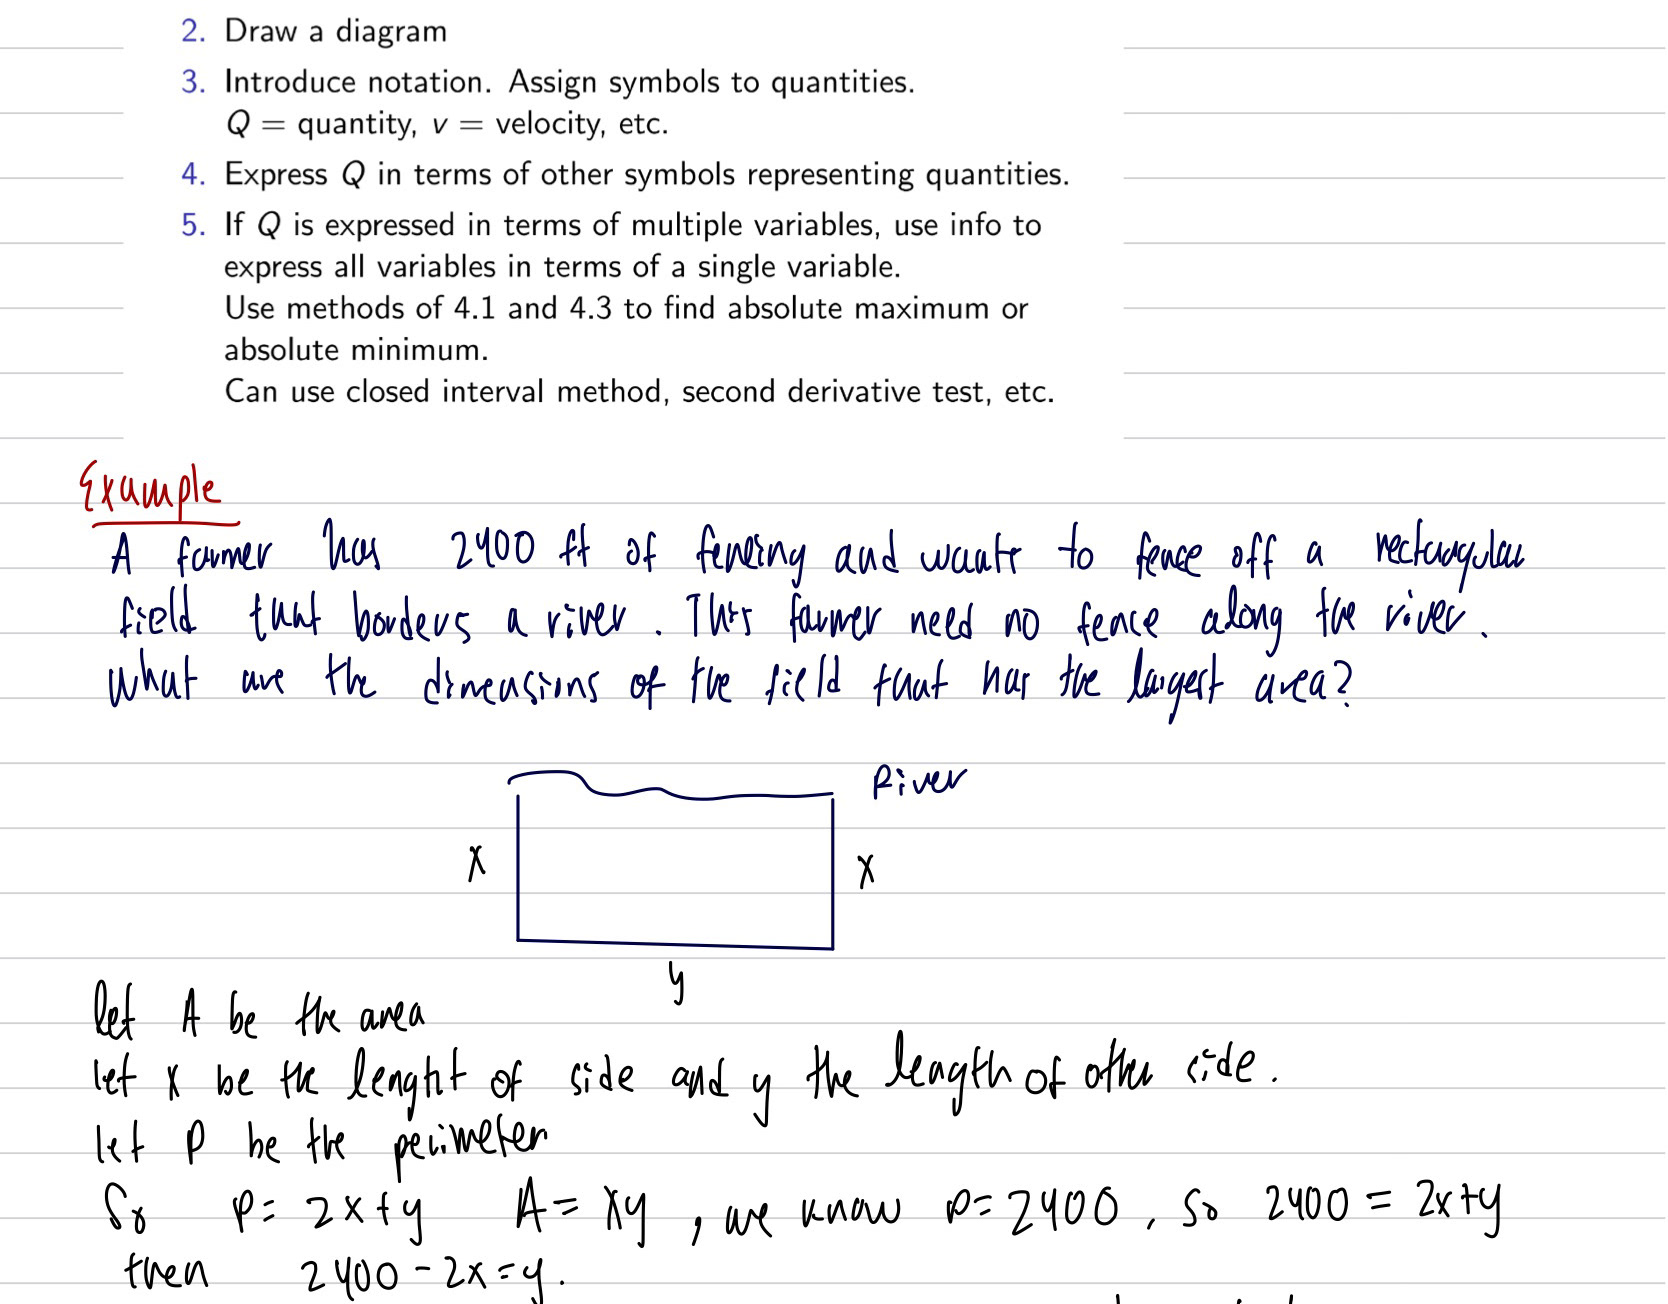 2. Draw a diagram
3. Introduce notation. Assign symbols to quantities.
Q = quantity, v = velocity, etc.
4. Express Q in terms of other symbols representing quantities.
5. If Q is expressed in terms of multiple variables, use info to
express all variables in terms of a single variable.
Use methods of 4.1 and 4.3 to find absolute maximum or
absolute minimum.
Can use closed interval method, second derivative test, etc.
Example
A farmer has 2400 ft of fencing and wants to fence off a rectangular
field that borders a river. This farmer need no fence along the river.
What are the dimensions of the field that has the largest area?
River
x x
y
let A be the area
let x be the lenght of side and y the length of other side.
let P be the perimeter
So P = 2x + y A = xy, we know P = 2400, so 2400 = 2x+y
then 2400 - 2x = y.